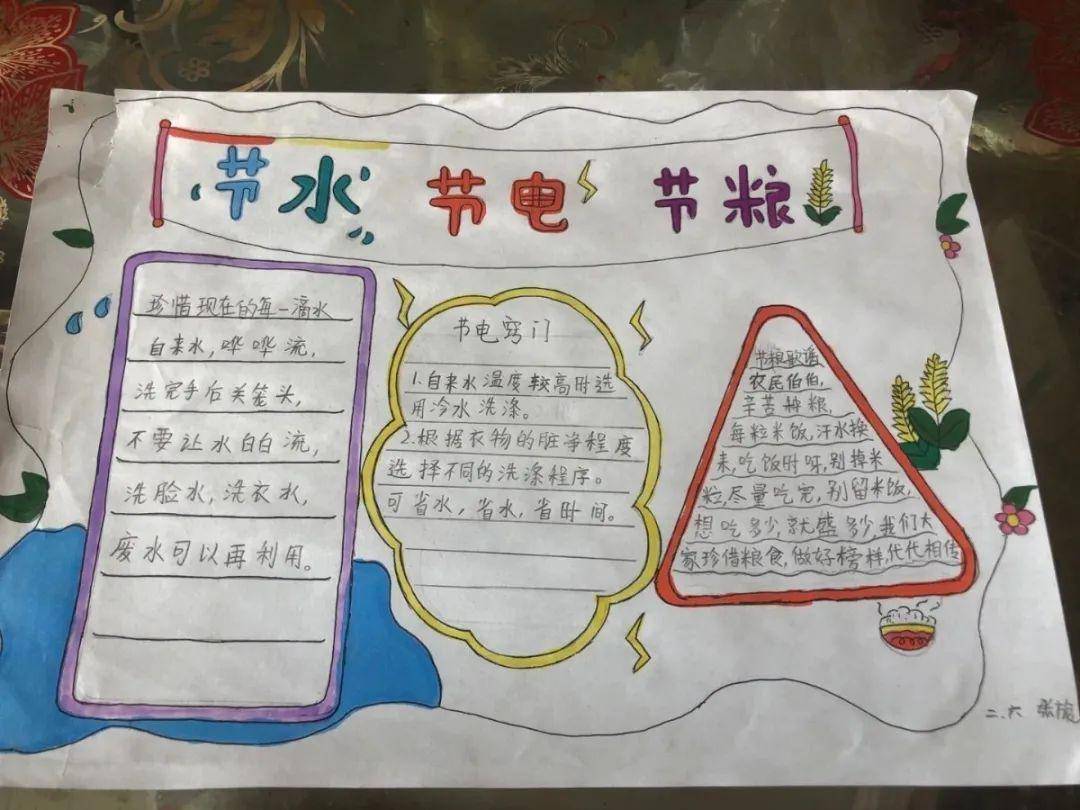 节水 节电 节粮
珍惜现在的每一滴水
自来水,哗哗流,
洗完手后关笼头,
不要让水白白流,
洗脸水,洗衣水,
废水可以再利用。
节电窍门
1.自来水温度较高时选
用冷水洗涤。
2.根据衣物的脏净程度
选择不同的洗涤程序。
可省水,省水,省时间。
节粮歌谣
农民伯伯,
辛苦种粮,
每粒米饭,汗水换
来,吃饭时呀,别掉米
粒,尽量吃完,别留米饭,
想吃多少就盛多少,我们大
家珍惜粮食,做好榜样,代代相传
二.六 张